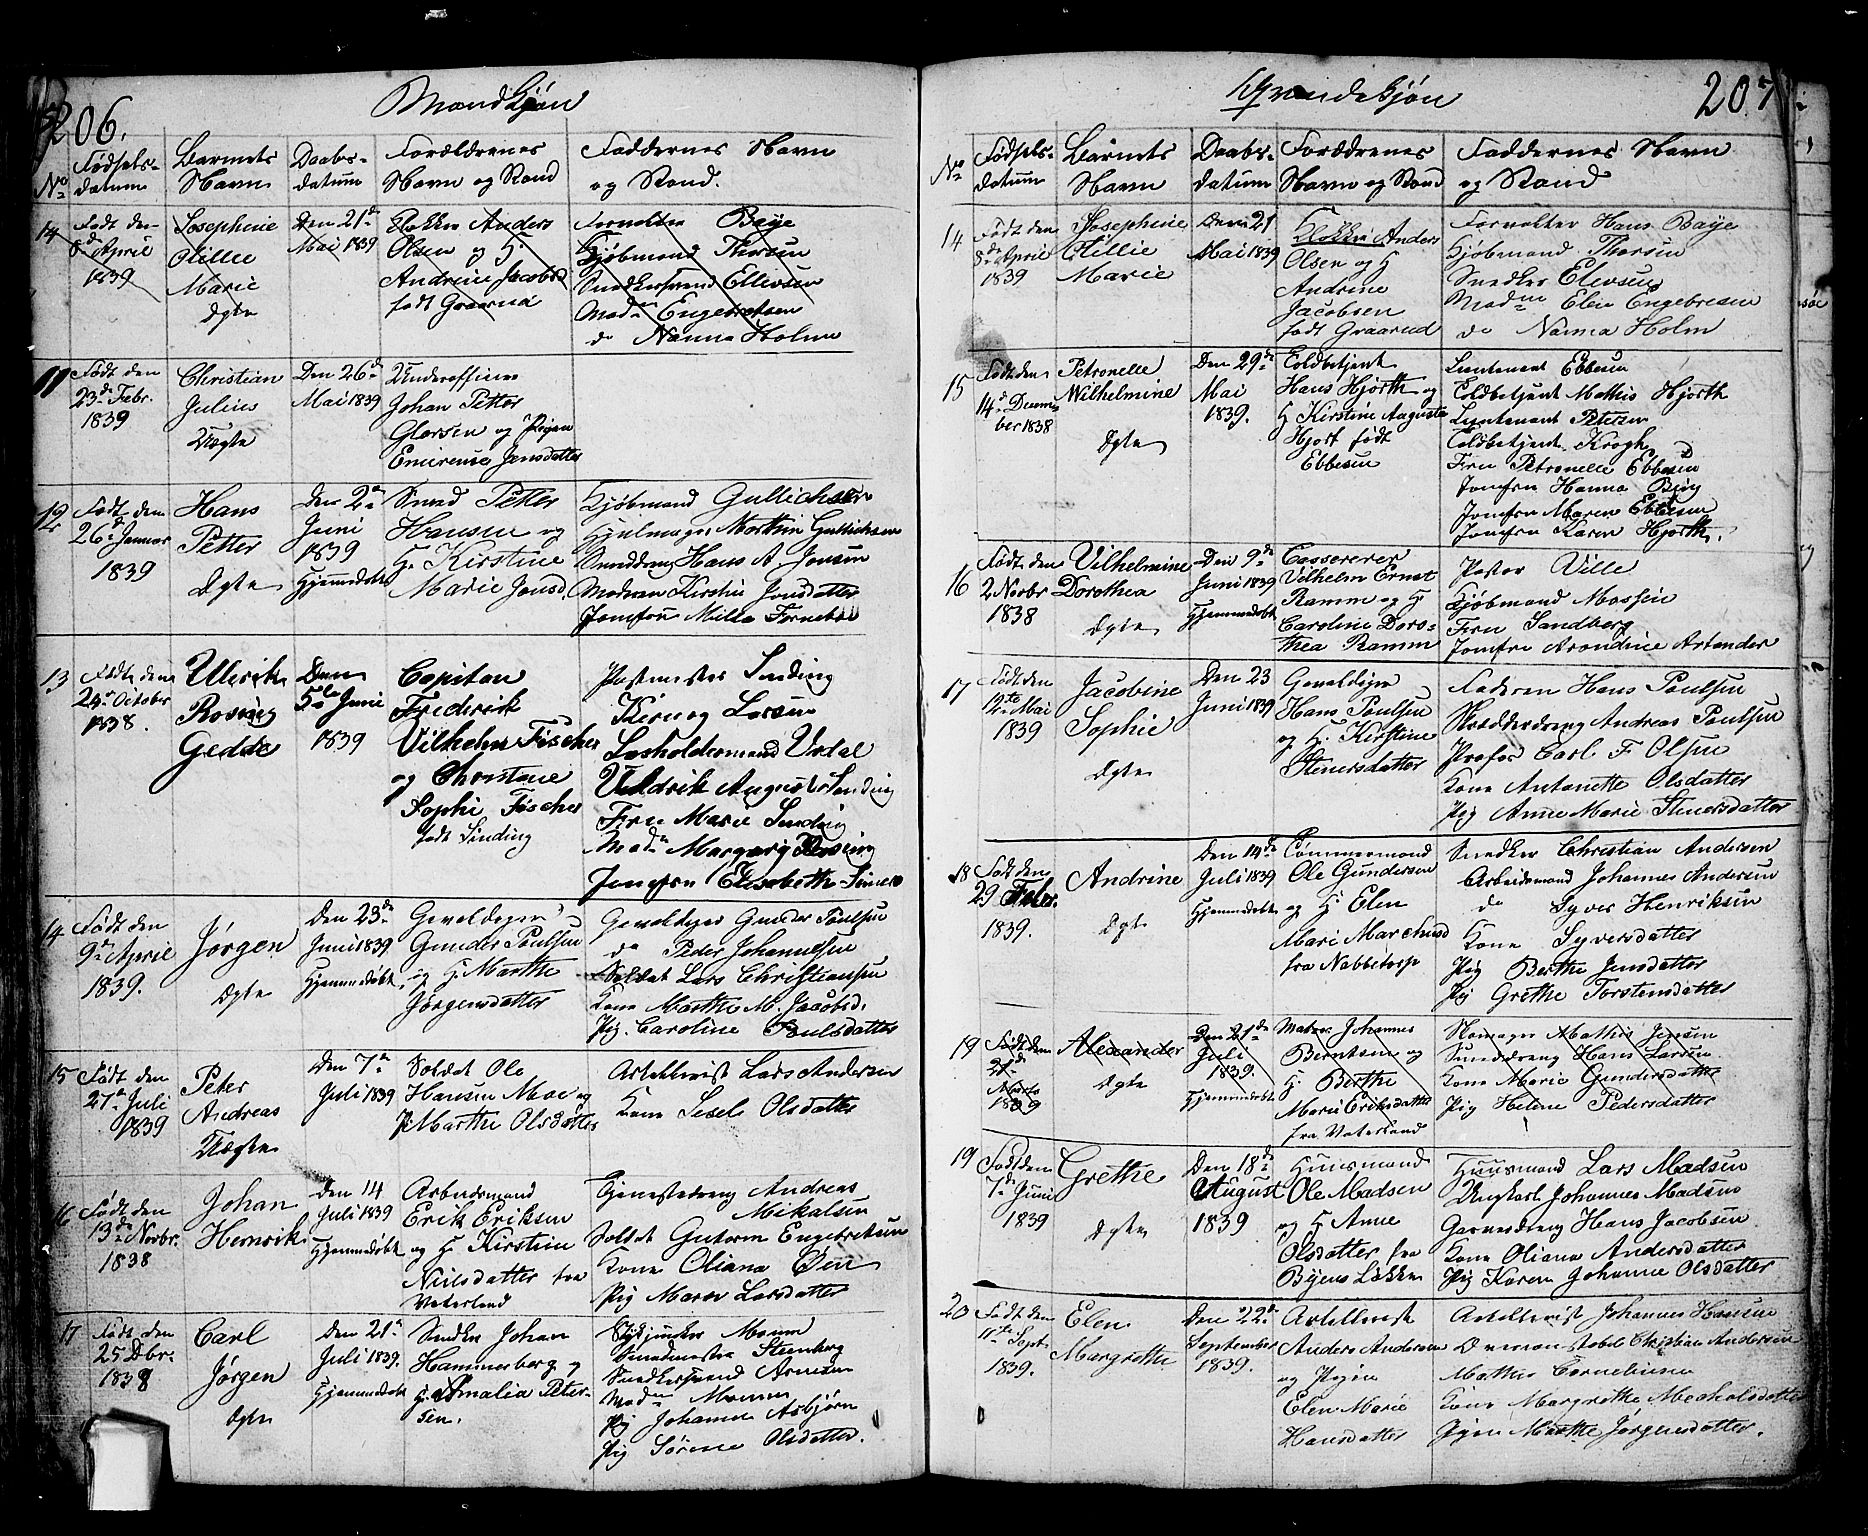 206.
Mandkjøn
No
Fødsels-
datum
Barnets
Navn
Daabs-
datum
Forældrenes
Navn og Stand
Faddernes Navn
og Stand.
14
Født den
8de April
1839
Josephine
Otillie
Marie
Ægte
Den 21de
Mai 1839
Klokker Anders
Olsen og H.
Andrine Jacobsd
født Graarud
Forvalter Baye
Kjöbmand Thorsen
Snedkersvend Ellevsen
Madn Engebretsen
do Nanna Holm
11
Født den
23de Febr.
1839
Christian
Julius
Uægte
Den 26de
Mai 1839
Underofficer
Johan Petter
Glorsen og Pigen
Emirense Jensdatter
12
Født den
26de Januar
1839
Hans
Petter
Ægte
Den 2de
Juni
1839
Hjemmedøbt
Smed Petter
Hansen og
H. Kirstine
Marie Jensd.
Kjöbmand Gullichsen
Hjulmager Morthin Gullichsen
Smeddreng Hans A. Jensen
Madman Kirstin Jensdatter
Jomfru Milda Forneboe
13
Født den
24de October
1838.
Ulerik
Rosing
Gedde
Den
5te Juni
1839
Capitan
Frederik
Vilhelm Fischer
og Christine
Sophi Fischer
født Sinding
Postmester Sinding
Kirurg Larsen
Losholdermand Urdal
Uldrik August Sinding
Fru Marie Sinding
Madn Margareg Rosing
Jomfru Elisabeth Simers
14
Født den
9de April
1839.
Jørgen
Ægte
Den 23de
Juni 1839
Hjemmedøbt
Gevaldiger
Gunder Poulsen
og H. Marthe
Jørgensdatter
Gevaldiger Gunder Poulsen
do Peder Johannesen
Soldat Lars Christiansen
Kone Marthe M. Jacobsd.
Pig. Caroline Poulsdatter
15
Født den
27de Juli
1839
Peter
Andreas
Uægte
Den 7de
Juli 1839
Soldat Ole
Hansen Moe og
P. Marthe Olsdatter
Artellerist Lars Andersen
Kone Sesele Olsdatter
16
Født den
13de Novbr.
1838
Johan
Henrik
Den 14
Juli 1839
Hjemmedøbt
Arbeidsmand
Erik Eriksen
og H. Kirstine
Nielsdatter fra
Vaterland
Tjenestedreng Andreas
Mikalsen
Soldat Gutorm Engebretsen
Kone Oliana Øen
Pig Maren Larsdatter
17
Født den
25 Dbr.
1838
Carl
Jørgen
Ægte
Den 21de
Juli 1839.
Hjemmedøbt
Snedker Johan
Hammerberg og
H. Amalia Peter-
sen.
Stenberg
Snedkersvend Arnesen
Madn
Pig Johanne Asbjørn
Pig Sørene Olsdatter.
207
Qvindekjøn
No
Fødsels-
datum
Barnets
Navn
Daabs-
datum
Forældrenes
Navn og Stand
Faddernes Navn
og Stand
14
Født den
8de April
1839
Josephine
Otillie
Marie
Den 21
Mai 1839
Klokker Anders
Olsen og H
Andrine
Jacobsen
født Graarud
Forvalter Hans Baye
Kjöbmand Thorsen
Snedker Elevsen
Madne Elen Engebresen
do Nanna Holm
15
Født den
14de Decem-
ber 1838
Petronelle
Wilhelmine
Ægte
Den 29de
Mai
1839.
Toldbetjent
Hans Hjorth og
H Kirstine Augusta
Hjort født
Ebbesen
Lieutenant Ebbesen
Toldbetjent Mathis Hjorth
Lieutenant Petersen
Toldbetjent Krogh
Fru Petronelle Ebbesen
Jomfru Hanna Bing
Jomfru Maren Ebbesen
Jomfru Karen Hjorth.
16
Født den
2 Novbr
1838
Vilhelmine
Dorothea
Ægte
Den 9de
Juni 1839
Hjemmedøbt
Casserer
Vilhelm Ernst
Ramm og H
Caroline Doro-
thea Ramm
Pastor Ville
Kjöbmand Mossin
Fru Sandberg
Jomfru Arondine Artander
17
Født den
12te Mai
1839
Jacobine
Sophie
Ægte
Den 23
Juni 1839
Gevaldiger
Hans Poulsen
og H. Kirstine
Stenersdatter
Faderen Hans Poulsen
Skrædderdreng Andreas Poulsen
Profos Carl F. Olsen
Kone Antonette Olsdatter
Pig Anne Marie Stenersdatter
18
Født den
29 Febr.
1839.
Andrine
Ægte
Den 14de
Juli 1839
Hjemmedøbt
Tømmermand
Ole Gundersen
og H. Elen
Mari Marchusd
fra Nabbetorp
Snedker Christian Andersen
Arbeidsmand Johannes Andersen
do Syver Henriksen
Kone Syversdatter
Pig Berthe Jensdatter
Pig Grethe Torstensdatter
19
Født den
21de
Marts
1839
Alexander
Ægte
Den 21de
Juli
1839.
Hjemmedøbt
Matros Johannes
Berntsen og
H. Berthe
Marie Eriksdatter
fra Vaterland
Skomager Mathis Jensen
Smeddreng Hans Larsen
Kone Marie Gundersdatter
Pig Helene Pedersdatter
19
Født den
7de Juni
1839
Grethe
Ægte
Den 18de
August
1839
Huusmand
Ole Madsen
og H Anne
Olsdatter fra
Byens Løkke
Huusmand Lars Madsen
Ungkarl Johannes Madsen
Garverdreng Hans Jacobsen
Kone Oliana Andersdatter
Pig Karen Johanne Olsdatter
20
Født den
11te Sept.
1839.
Elen
Margrethe
Den 22de
September
1839.
Artellerist
Anders Andersen
og Pigen
Elen Marie
Hansdatter
Artellerist Johannes Hansen
Christian Andersen
Mathis Corneliusen
Kone Margrethe Mechalsdatter
Pigen Marthe Jørgensdatter.